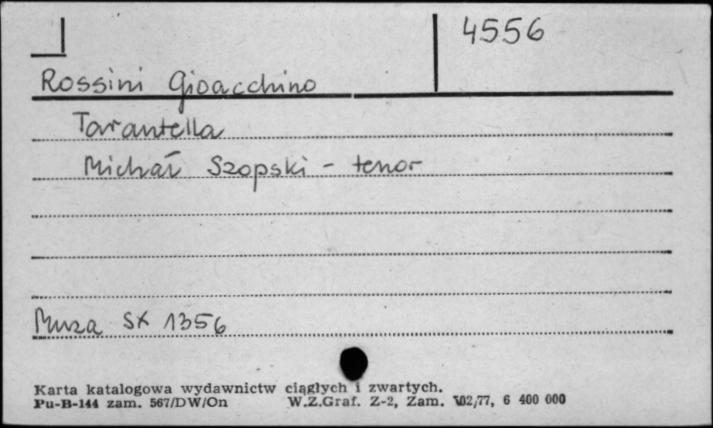 4556
Rossini Gioacchino
Tarantella
Michał Szopski - tenor
Muza SX 1356
Karta katalogowa wydawnictw ciągłych i zwartych.
Pu-B-144 zam. 567/DW/On W.Z.Graf. Z-2, Zam. 102/77, 6 400 000